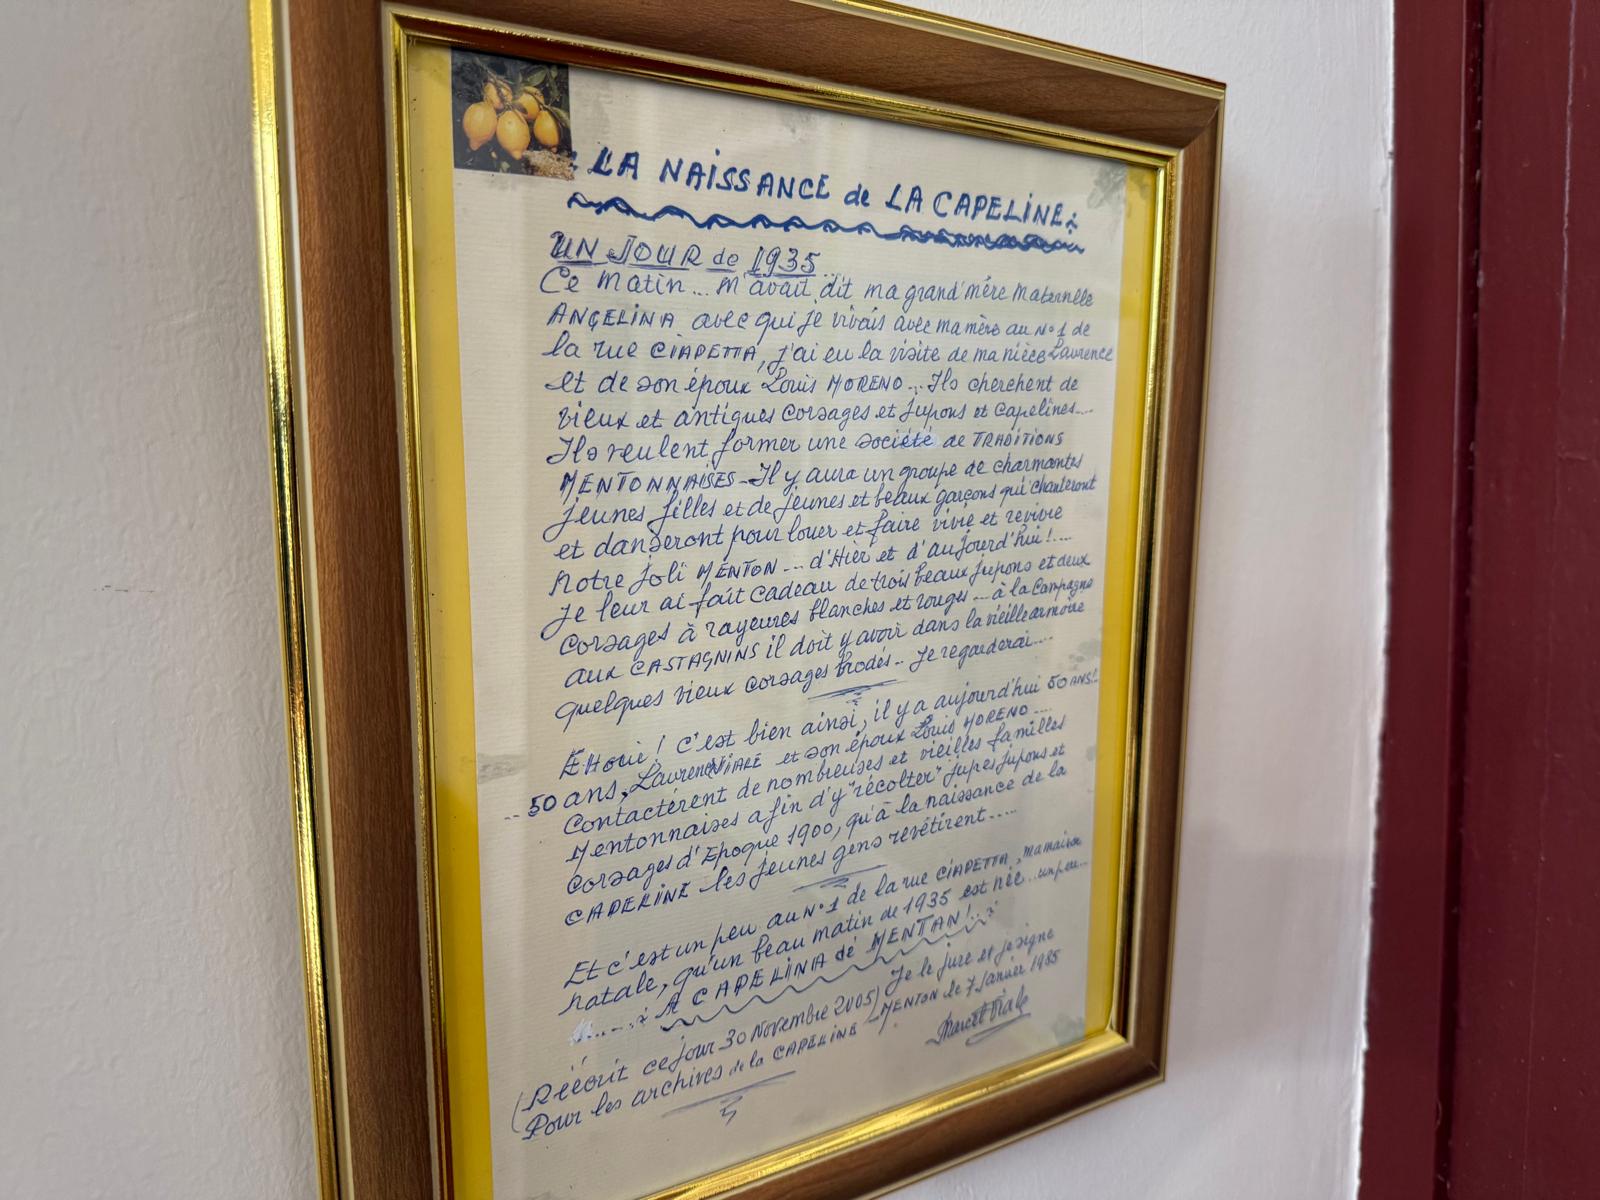 : LA NAISSANCE de LA CAPELINE :
UN JOUR de 1935
Ce Matin... M'avait dit ma grand'mère Maternelle
ANGELINA avec qui je vivais avec ma mère au N°1 de
la rue CIAPETTA, j'ai eu la visite de ma nièce Laurence
et de son époux Louis MORENO... Ils cherchent de
vieux et antiques corsages et jupons et capelines....
Ils veulent former une société de TRADITIONS
MENTONNAISES - Il y aura un groupe de charmantes
jeunes filles et de jeunes et beaux garçons qui chanteront
et danseront pour louer et faire vivre et revivre
Notre joli MENTON... d'Hier et d'aujourd'hui!....
Je leur ai fait cadeau de trois beaux jupons et deux
corsages à rayures blanches et rouges... à la Campagne
aux CASTAGNINS il doit y avoir dans la vieille armoire
quelques vieux corsages brodés.. Je regarderai....
EHoui! C'est bien ainsi, il y a aujourd'hui 50 ANS!
... 50 ans, Laurence et son époux Louis MORENO....
Contactèrent de nombreuses et vieilles familles
Mentonnaises afin d'y "récolter" jupes jupons et
corsages d'Epoque 1900, qu'à la naissance de la
CAPELINE les jeunes gens revêtirent.....
Et c'est un peu au N°1 de la rue CIAPETTA, ma maison
natale, qu'un beau matin de 1935 est née.. un peu...
: A CAPELINA dé MENTAN!..:
(Réécrit ce jour 30 Novembre 2005) Je le jure et je signe
Pour les archives de la CAPELINE - MENTON le 7 Janvier 1985
Marcel